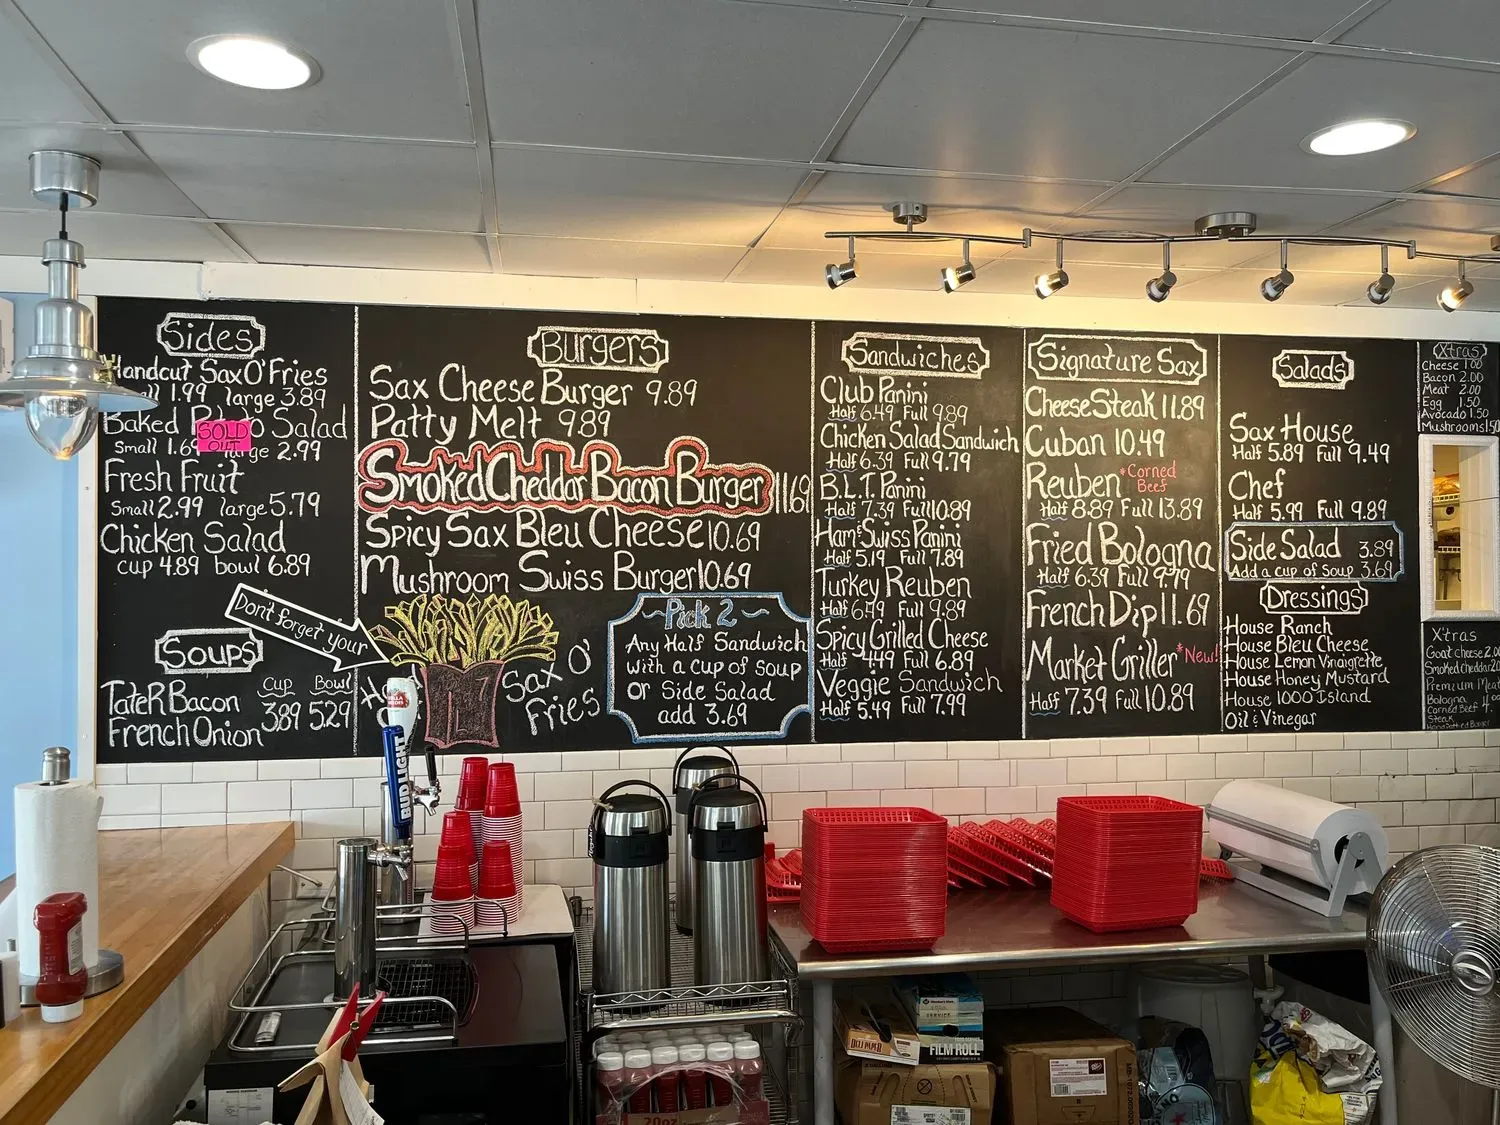 Sides
Handcut Sax O' Fries
1.99 large 3.89
Baked Potato Salad
SOLD
OUT
Small 1.69 large 2.99
Fresh Fruit
Small 2.99 large 5.79
Chicken Salad
cup 4.89 bowl 6.89
Don't forget your
Soups
Cup Bowl
TateR Bacon
French Onion 3.89 5.29
Burgers
Sax Cheese Burger 9.89
Patty Melt 9.89
Smoked Cheddar Bacon Burger 11.69
Spicy Sax Bleu Cheese 10.69
Mushroom Swiss Burger 10.69
Sax O'
Fries
~Pick 2~
Any Half Sandwich
with a cup of soup
or Side Salad
add 3.69
Sandwiches
Club Panini
Half 6.49 Full 9.89
Chicken Salad Sandwich
Half 6.39 Full 9.79
B.L.T. Panini
Half 7.39 Full 10.89
Ham & Swiss Panini
Half 5.19 Full 7.89
Turkey Reuben
Half 6.79 Full 9.89
Spicy Grilled Cheese
Half 4.49 Full 6.89
Veggie Sandwich
Half 5.49 Full 7.99
Signature Sax
Cheese Steak 11.89
Cuban 10.49
Reuben *Corned
Beef
Half 8.89 Full 13.89
Fried Bologna
Half 6.39 Full 9.79
French Dip 11.69
Market Griller *New!
Half 7.39 Full 10.89
Salads
Sax House
Half 5.89 Full 9.49
Chef
Half 5.99 Full 9.89
Side Salad 3.89
Add a cup of soup 3.69
Dressings
House Ranch
House Bleu Cheese
House Lemon Vinaigrette
House Honey Mustard
House 1000 Island
Oil & Vinegar
Xtras
Cheese 1.00
Bacon 2.00
Meat 2.00
Egg 1.50
Avocado 1.50
Mushrooms 1.50
X'tras
Goat cheese 2.00
Smoked cheddar
Premium Meat
Bologna
Corned Beef 4.
Steak
BUD LIGHT
FILM ROLL
20oz